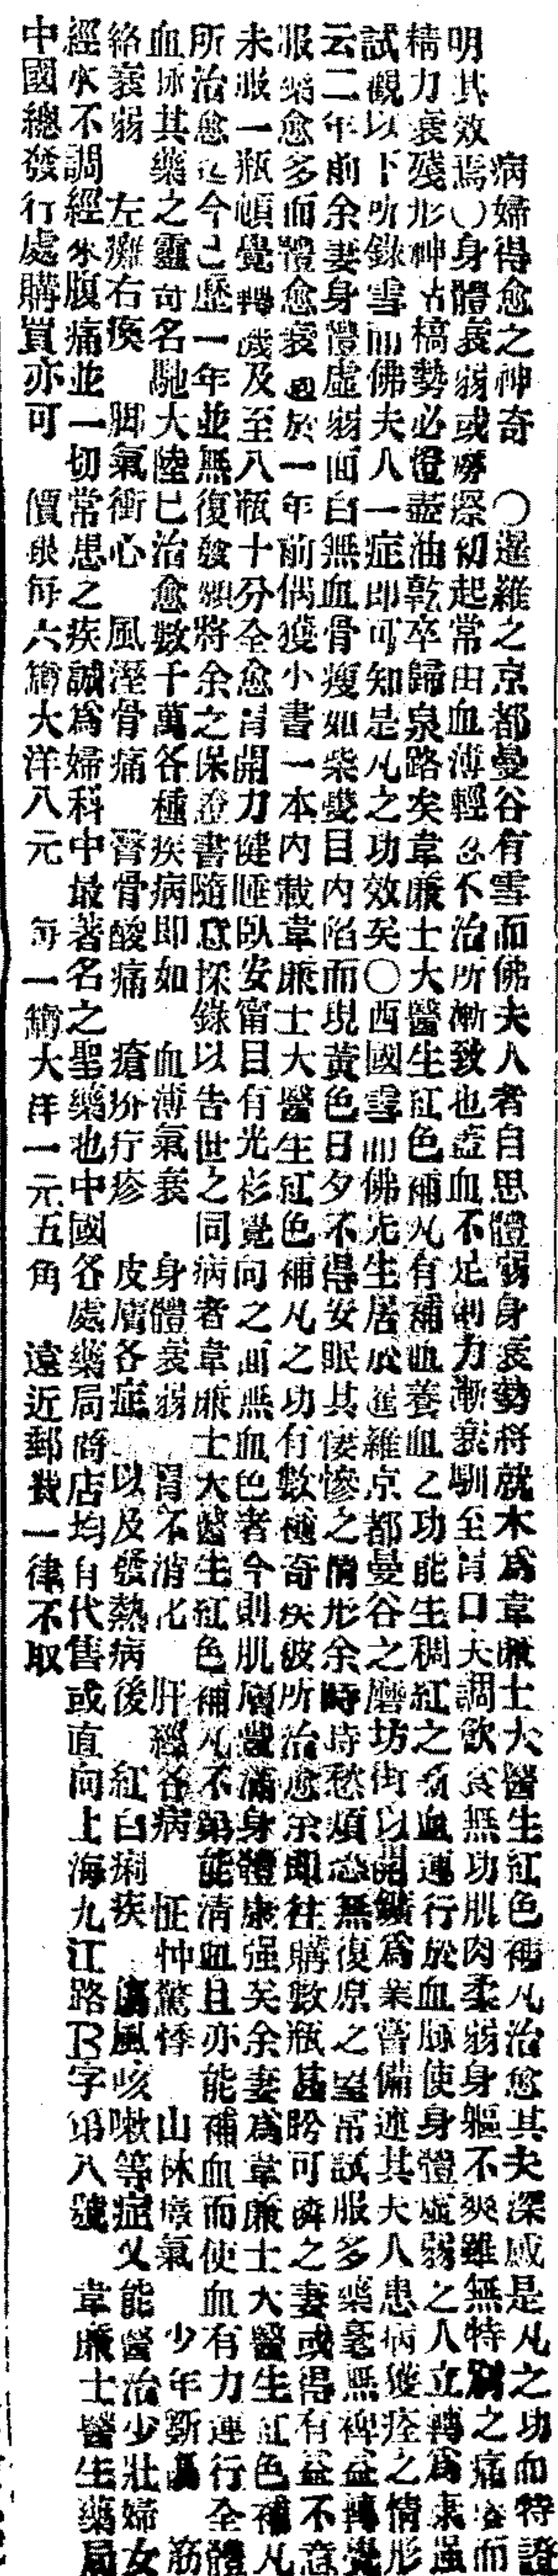 病婦得愈之神奇　〇暹羅之京都曼谷有雪而佛夫人者自思體弱身衰勢將就木爲韋廉士大醫生紅色補丸治愈其夫深感是丸之功而特證
明其效焉〇身體衰弱或癆瘵初起常由血薄輕忽不治所漸致也盖血不足則力漸衰馴至胃口失調飲食無功肌肉柔弱身軀不爽雖無特別之痛苦而
精力衰殘形神枯槁勢必燈盡油乾卒歸泉路矣韋廉士大醫生紅色補丸有補血養血之功能生稠紅之新血運行於血脈使身體虛弱之人立轉爲康强
試觀以下所錄雪而佛夫人一症即可知是丸之功效矣〇西國雪而佛先生居於暹羅京都曼谷之磨坊街以開鑛爲業嘗備述其夫人患病獲痊之情形
云二年前余妻身體虛弱面白無血骨瘦如柴雙目內陷而現黃色日夕不得安眠其悽慘之情形余時時愁煩恐無復原之望常試服多藥毫無裨益轉覺
服藥愈多而體愈衰 於一年前偶獲小書一本內載韋廉士大醫生紅色補丸之功有數種奇疾彼所治愈余即往購數瓶甚盼可憐之妻或得有益不意
未服一瓶頓覺轉機及至八瓶十分全愈胃開力健睡臥安甯目有光彩覺向之面無血色者今則肌膚豐滿身體康强矣余妻爲韋廉士大醫生紅色補丸
所治愈迄今已歷一年並無復發願將余之保證書隨意採錄以告世之同病者韋廉士大醫生紅色補丸不第能清血且亦能補血而使血有力運行全體
血脈其藥之靈奇名馳大陸已治愈數千萬各種疾病即如　血薄氣衰　身體衰弱　胃不消化　肝經各病　怔忡驚悸　山林瘴氣　少年斵傷　筋
絡衰弱　左癱右瘓　脚氣衝心　風溼骨痛　臀骨酸痛　瘡疥疔疹　皮膚各症　以及發熱病後　紅白痢疾　傷風咳嗽等症又能醫治少壯婦女
經水不調經水腹痛並一切常患之疾誠爲婦科中最著名之聖藥也中國各處藥局商店均有代售或直向上海九江路B字第八號　韋廉士醫生藥局
中國總發行處購買亦可　價銀每六罇大洋八元　每一罇大洋一元五角　遠近郵費一律不取